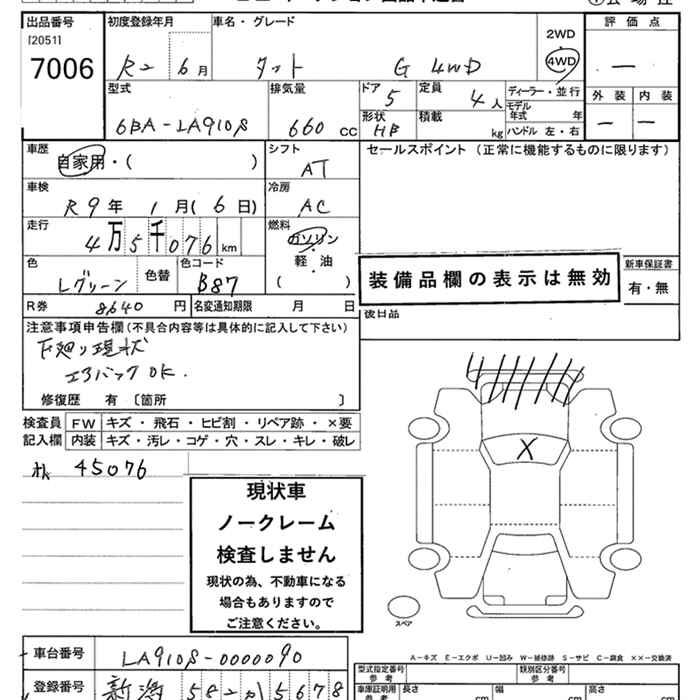 出品番号
[2051]
7006
初度登録年月
R2 6月
車名・グレード
タント G 4WD
2WD
4WD
評価点
―
外装 内装
― ―
型式
6BA-LA910S
排気量
660 cc
ドア
5
形状
HB
定員
4人
積載
kg
ディーラー・並行
モデル年式 年
ハンドル 左・右
車歴
自家用・( )
シフト
AT
車検
R9年 1月(6日)
冷房
AC
走行
4万5千076km
燃料
ガソリン
・
軽・油
・
( )
色
Lグリーン
色替
色コード
B87
R券 8640 円
名変通知期限 月 日
セールスポイント (正常に機能するものに限ります)
装備品欄の表示は無効
新車保証書
有・無
後日品
注意事項申告欄(不具合内容等は具体的に記入して下さい)
下廻り現状
エアバックOK.
修復歴 有 〔箇所 〕
検査員 FW キズ・飛石・ヒビ割・リペア跡・×要
記入欄 内装 キズ・汚レ・コゲ・穴・スレ・キレ・破レ
45076
現状車
ノークレーム
検査しません
現状の為、不動車になる
場合もありますので
ご注意ください。
X
スペア
A-キズ E-エクボ U-凹み W-補修跡 S-サビ C-腐食 ××-交換済
車台番号
LA910S-0000090
登録番号
新潟 582か5678
型式指定番号
参考
類別区分番号
参考
車庫証明用
参考
長さ cm
幅 cm
高さ cm